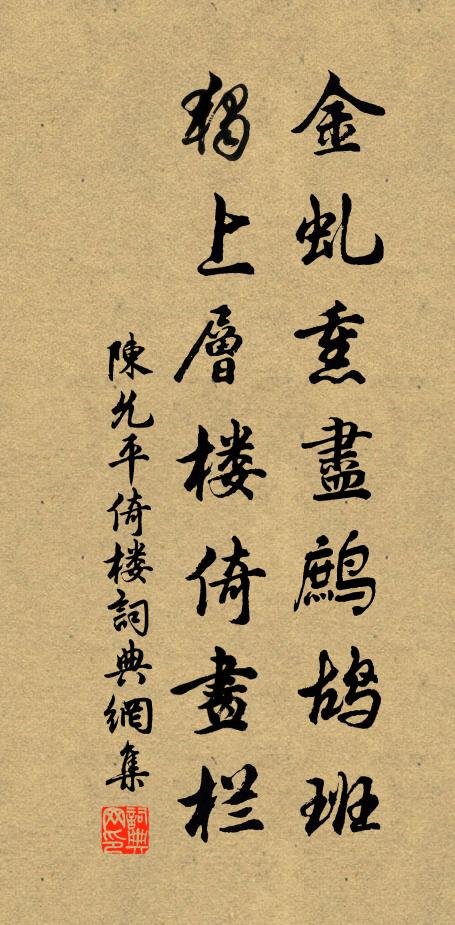 金虬熏盡鷓鴣班
獨上層楼倚畫栏
陳允平倚楼詞典網集
詞典网印